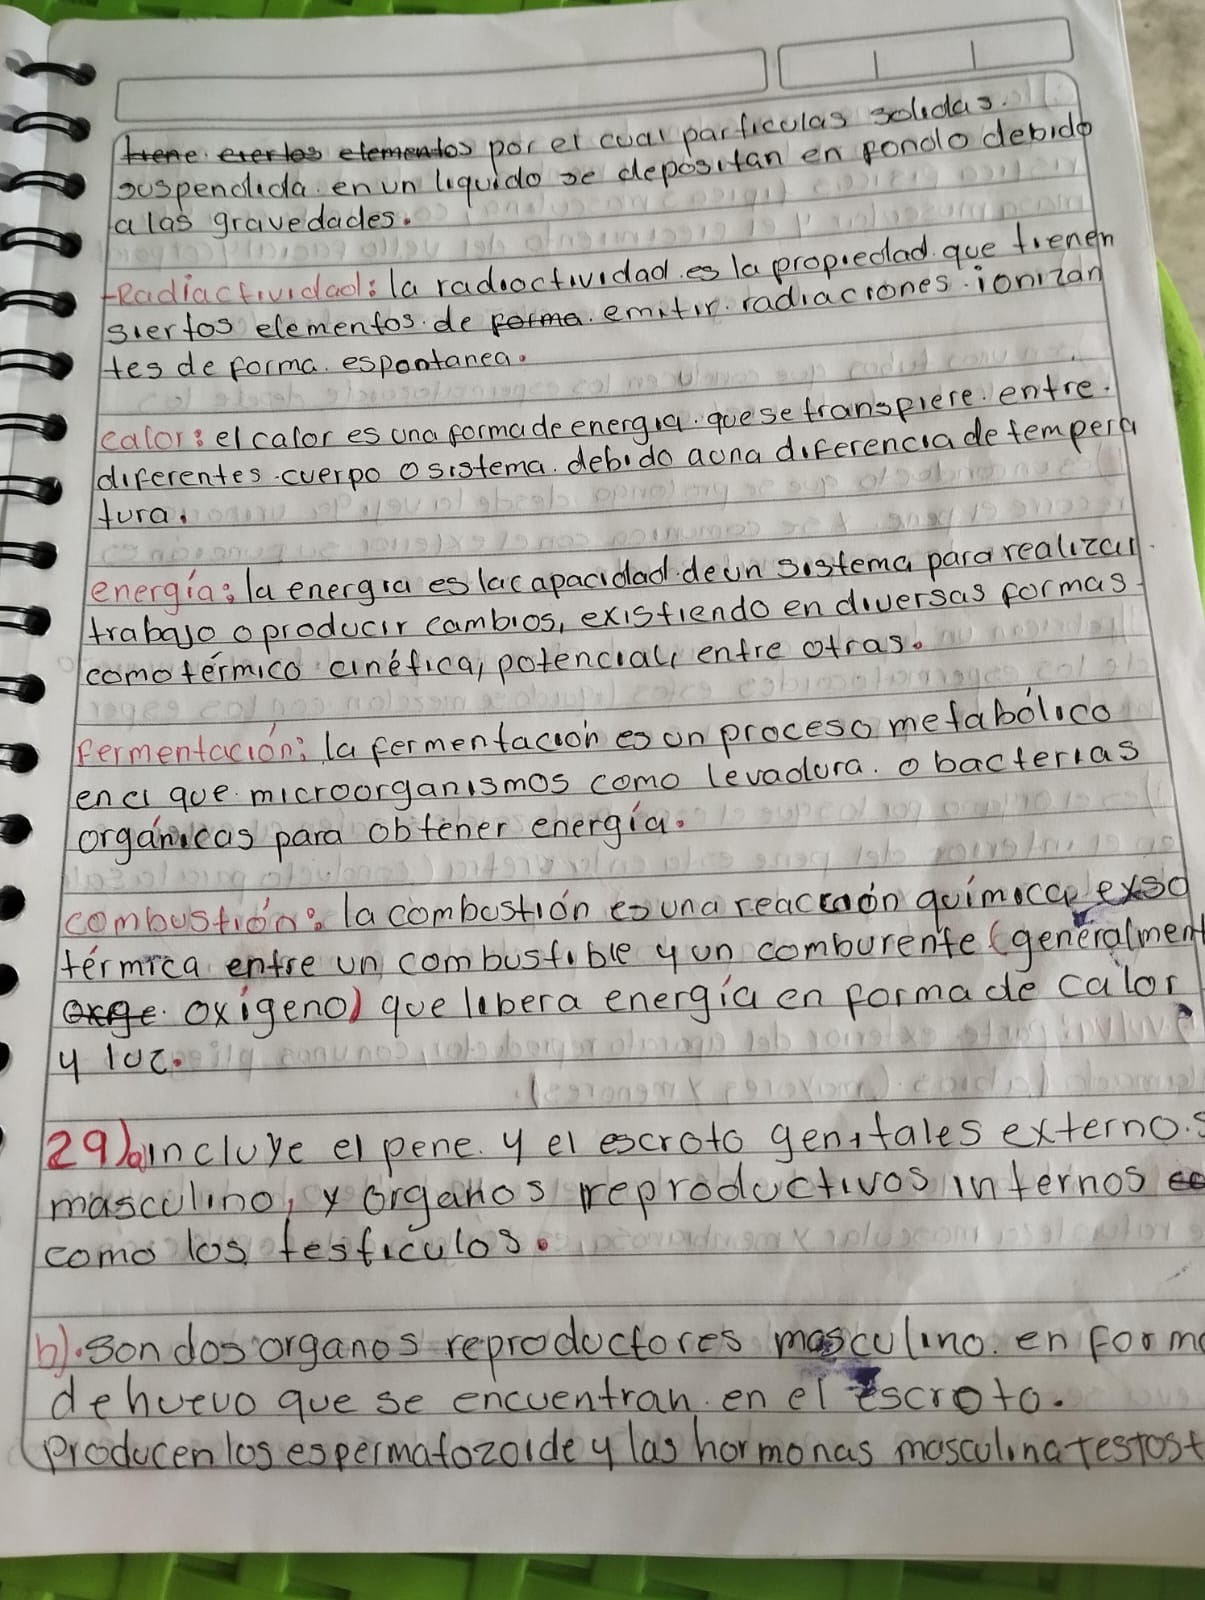 tiene ciertos elementos por el cual particulas solidas.
suspendida en un liquido se depositan en fondo debido
a las gravedades.
-Radiactividad: la radioactividad es la propiedad que tienen
siertos elementos de forma emitir radiaciones ionizan
tes de forma espontanea.
calor: el calor es una forma de energia que se transfiere entre
diferentes cuerpo o sistema debido a una diferencia de tempera
tura.
energía: la energia es la capacidad de un sistema para realizar
trabajo o producir cambios, existiendo en diversas formas
como térmico cinética, potencial, entre otras.
fermentación: la fermentación es un proceso metabólico
en el que microorganismos como levadura o bacterias
orgánicas para obtener energía.
combustión: la combustión es una reacción química exso
térmica entre un combustible y un comburente (generalment
oxge oxígeno) que libera energía en forma de calor
y luz.
29)a incluye el pene y el escroto genitales externos
masculino, y órganos reproductivos internos
como los testiculos.
b). son dos organos reproductores masculino en foorma
de huevo que se encuentran en el escroto.
Producen los espermatozoide y las hormonas masculina Testost